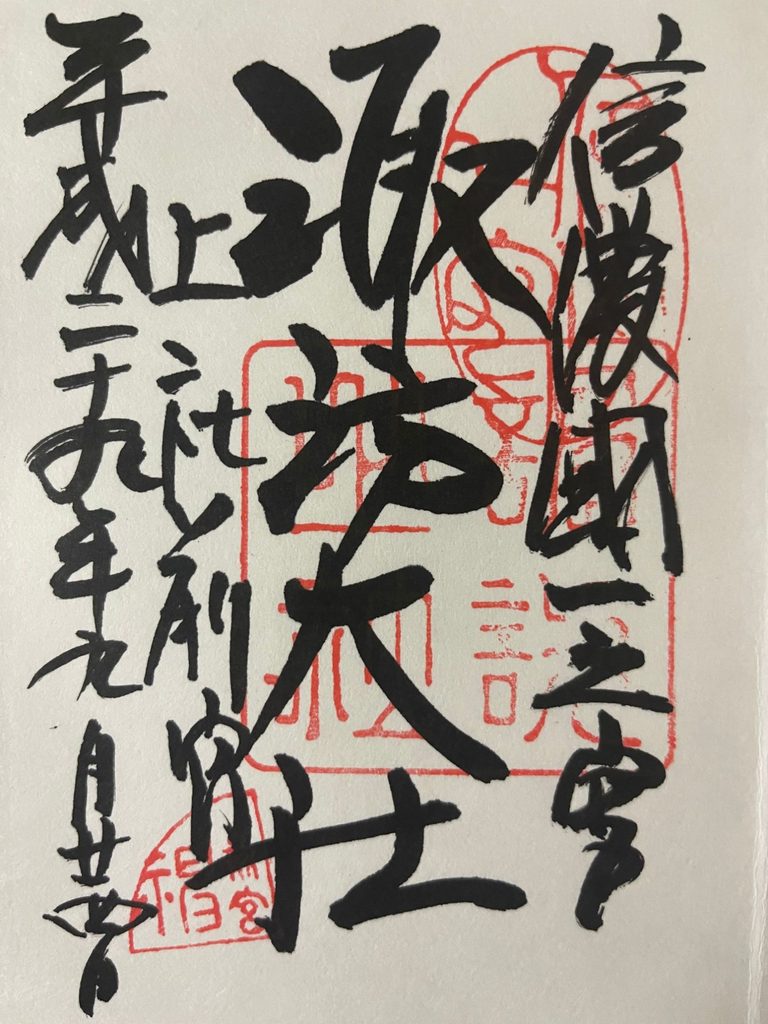 信濃國一之宮
諏訪大社
上社前宮
平成二十九年九月廿四日